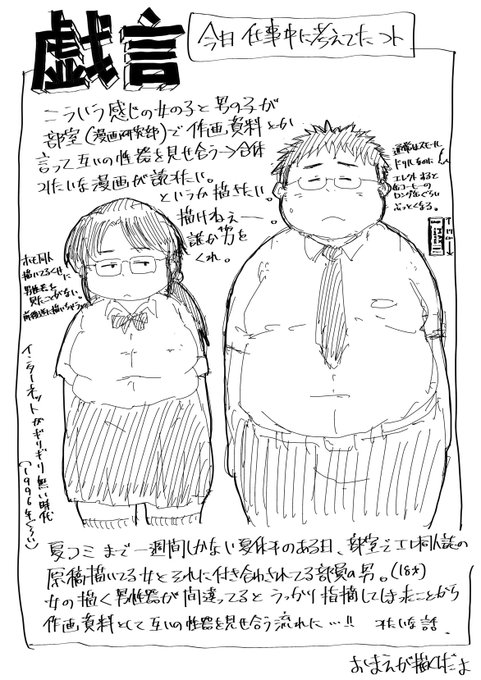 戯言
今日仕事中に考えてたコト
こういう感じの女の子と男の子が
部室(漫画研究部)で作画資料とか
言って互いの性器を見せ合う→合体
みたいな漫画が読みたい。
というか描きたい。
描けねぇー。
誰か男を
くれ。
通常はスモール
エレクトすると
缶コーヒーの
ロング缶ぐらい
ぶっとくなる。
ホモ同人
描いてるくせに
男性器を
見たことがない。
インターネットがギリギリ無い時代
(1996年ぐらい)
夏コミまで一週間しかない夏休みのある日、部室でエロ同人誌の
原稿描いてる女とそれに付き合わされてる部員の男。(18才)
女の描く男性器が間違ってるとうっかり指摘してしまったことから
作画資料として互いの性器を見せ合う流れに…!! みたいな話。
おまえが描くんだよ